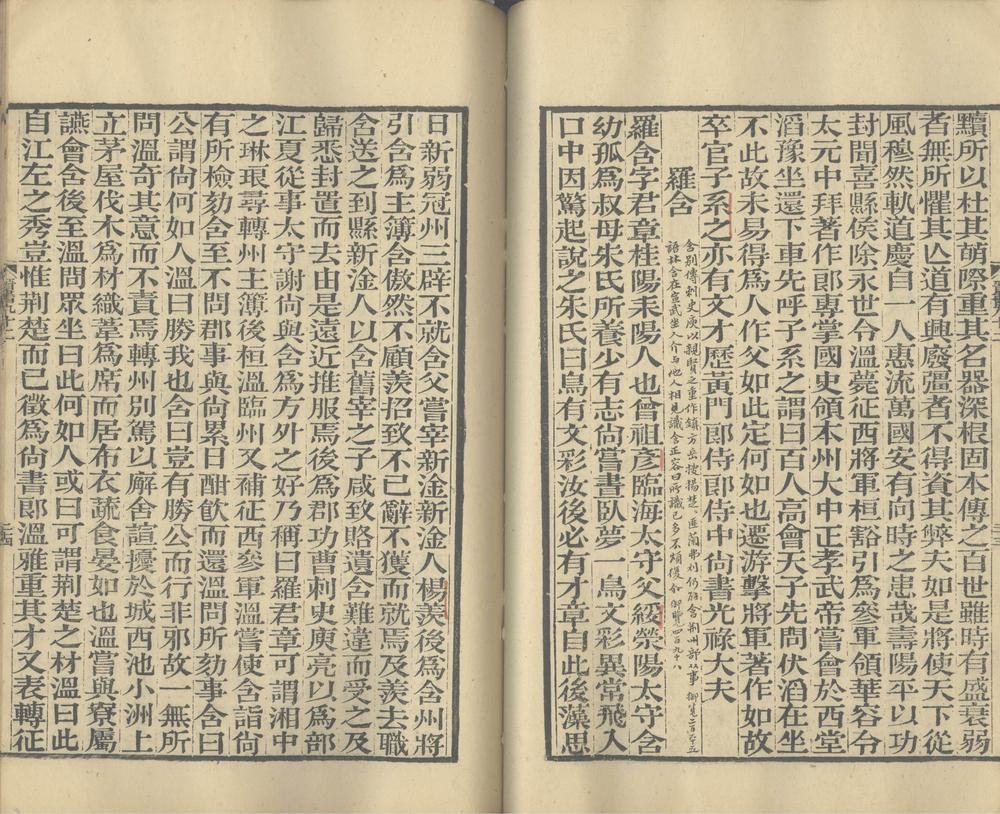 黷所以杜其萌際重其名器深根固本傳之百世雖時有盛衰弱
者無所懼其亾道有興廢彊者不得資其弊夫如是將使天下從
風穆然軌道慶自一人惠流萬國安有向時之患哉壽陽平以功
封聞喜縣侯除永世令溫薨征西將軍桓豁引爲參軍領華容令
太元中拜著作郎專掌國史領本州大中正孝武帝嘗會於西堂
滔豫坐還下車先呼子系之謂曰百人高會天子先問伏滔在坐
不此故未易得爲人作父如此定何如也遷游擊將軍著作如故
卒官子系之亦有文才歷黃門郎侍郎侍中尚書光祿大夫
羅含
含別傳刺史庾以親賢之重作鎮方岳搜揚楚匯蘭弗刈仍辟含荊州部從事 御覽二百六十五
語林含在宣武坐人介与他人相見識含正容曰所識已多不煩復介 御覽四百九十八
羅含字君章桂陽耒陽人也曾祖彥臨海太守父綏滎陽太守含
幼孤爲叔母朱氏所養少有志尚嘗晝臥夢一鳥文彩異常飛入
口中因驚起說之朱氏曰鳥有文彩汝後必有才章自此後藻思
日新弱冠州三辟不就含父嘗宰新淦新淦人楊羨後爲含州將
引含爲主簿含傲然不顧羨招致不已辭不獲而就焉及羨去職
含送之到縣新淦人以含舊宰之子咸致賂遺含難違而受之及
歸悉封置而去由是遠近推服焉後爲郡功曹刺史庾亮以爲部
江夏從事太守謝尚與含爲方外之好乃稱曰羅君章可謂湘中
之琳琅尋轉州主簿後桓溫臨州又補征西參軍溫嘗使含詣尚
有所檢劾含至不問郡事與尚累日酣飲而還溫問所劾事含曰
公謂尚何如人溫曰勝我也含曰豈有勝公而行非邪故一無所
問溫奇其意而不責焉轉州別駕以廨舍諠擾於城西池小洲上
立茅屋伐木爲材織葦爲席而居布衣蔬食晏如也溫嘗與寮屬
讌會含後至溫問眾坐曰此何如人或曰可謂荊楚之材溫曰此
自江左之秀豈惟荊楚而已徵爲尚書郎溫雅重其才又表轉征